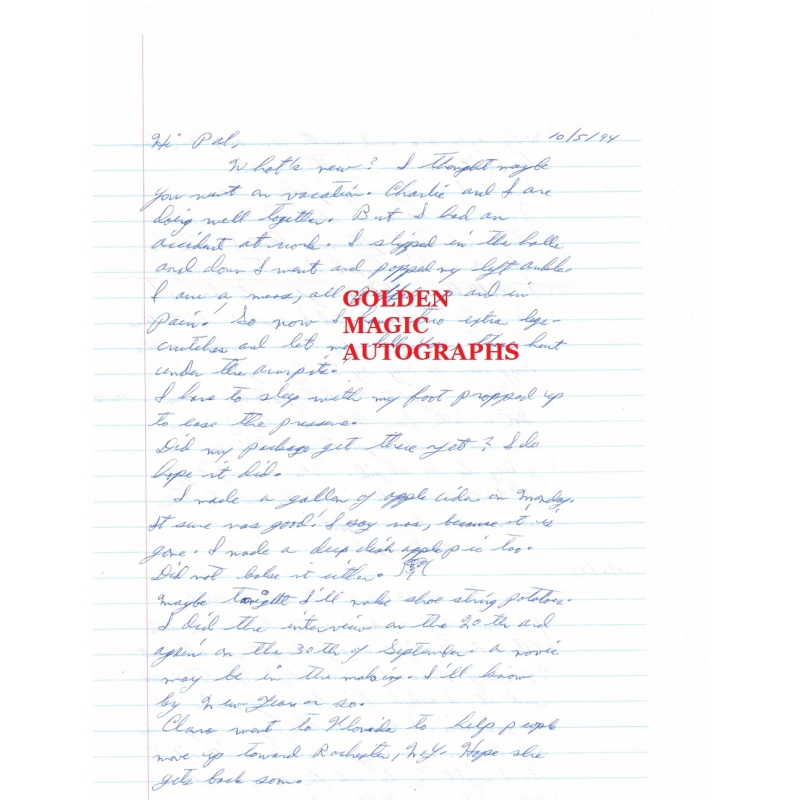 Hi Pal, 10/5/94
What's new? I thought maybe
you went on vacation. Charlie and I are
doing well together. But I had an
accident at work. I slipped in the halls
and down I went and popped my left ankle.
I am a mess, all and in
GOLDEN
pain. So now I two extra legs-
MAGIC
crutches and let me tell you they hurt
AUTOGRAPHS
under the armpits.
I have to sleep with my foot propped up
to ease the pressure.
Did my package get there yet? I do
hope it did.
I made a gallon of apple cider on Monday.
It sure was good! I say was, because it is
gone. I made a deep dish apple pie too.
Did not bake it either.
Maybe tonight I'll make shoe string potatoes.
I did the interview on the 20th and
again on the 30th of September. A movie
may be in the making. I'll know
by New Years or so.
Clara went to Florida to help people
move up toward Rochester, N.Y. Hope she
gets back soon.